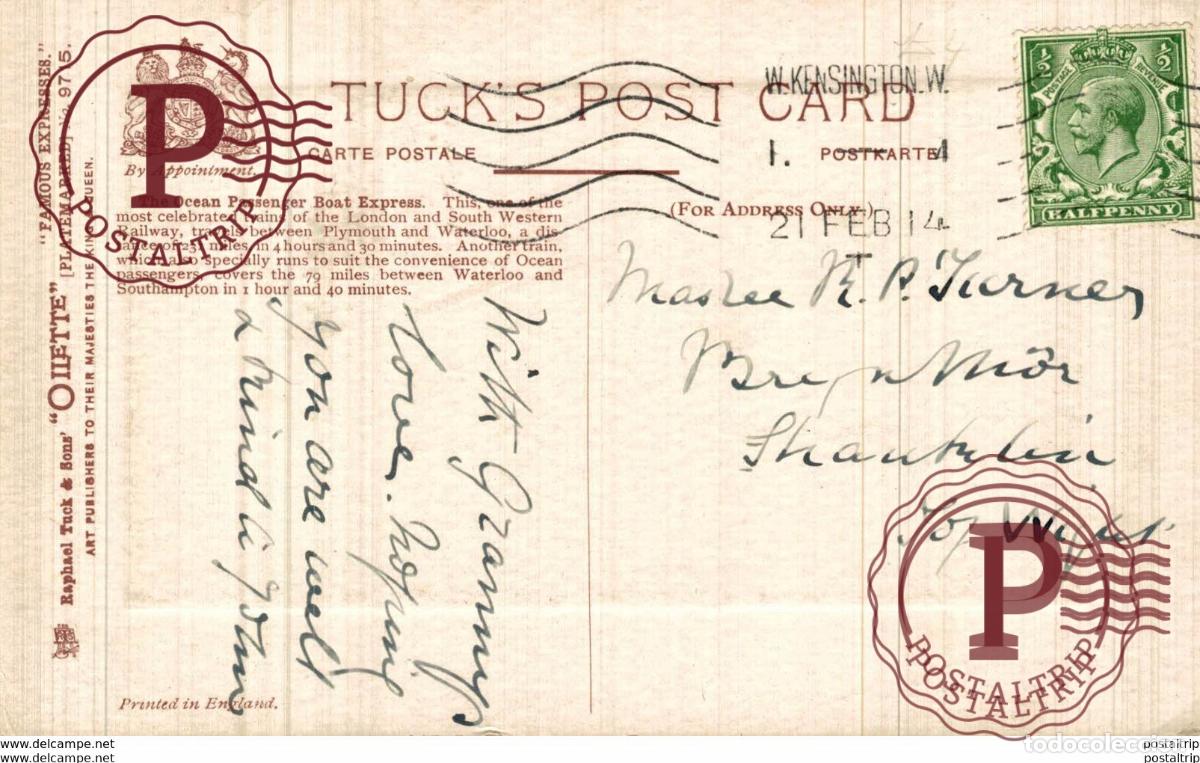 "FAMOUS EXPRESSES."
Raphael Tuck & Sons' "OILETTE" [PLATEMARKED] 9715.
ART PUBLISHERS TO THEIR MAJESTIES THE KING QUEEN.
TUCK'S POST CARD
CARTE POSTALE
POSTKARTE
By Appointment.
(FOR ADDRESS ONLY.)
The Ocean Passenger Boat Express. This, one of the
most celebrated trains of the London and South Western
Railway, travels between Plymouth and Waterloo, a dis-
miles, in 4 hours and 30 minutes. Another train,
which also specially runs to suit the convenience of Ocean
passengers, covers the 79 miles between Waterloo and
Southampton in 1 hour and 40 minutes.
With Grannys
love. Hoping
you are well
Printed in England.
W. KENSINGTON. W.
21 FEB 14
½ ½
POSTAGE REVENUE
HALFPENNY
Master R. P. Turner
Bryn Môr
Shanklin
I of Wight
P
POSTALTRIP
P
POSTALTRIP
POSTALTRIP
todocoleccion
www.billetesnumis.com
www.billetesnumis.com
postaltrip
postaltrip